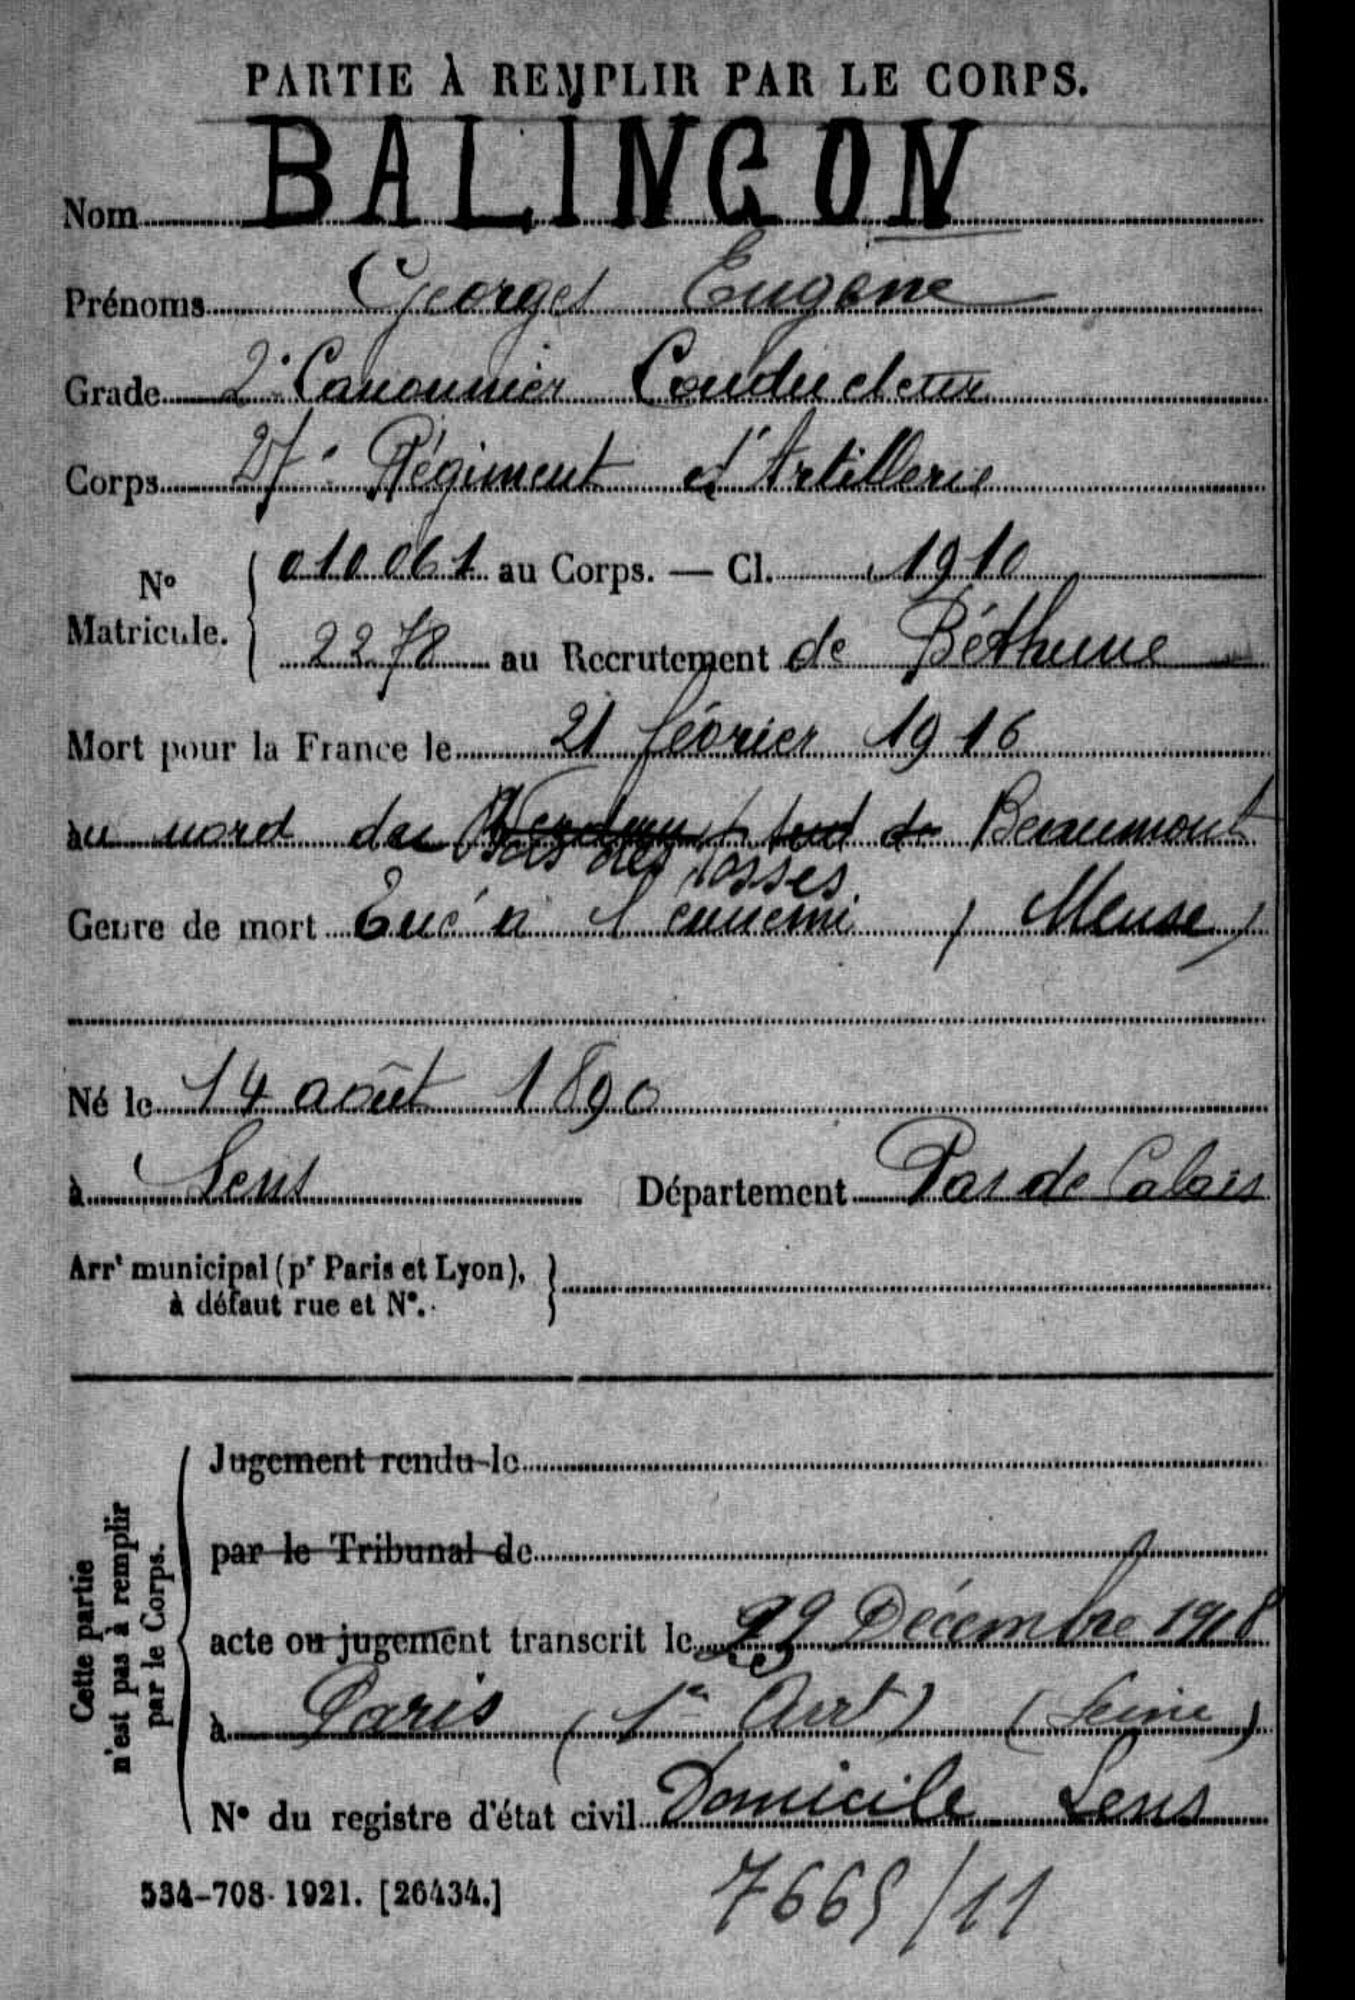 PARTIE À REMPLIR PAR LE CORPS.
Nom BALINCON
Prénoms Georges Eugène
Grade 2e Canonnier Conducteur
Corps 27e Régiment d'Artillerie
No Matricule. 010061 au Corps. — Cl. 1910
2278 au Recrutement de Béthune
Mort pour la France le 21 février 1916
au nord du de Beaumont
Bois des Fosses
Genre de mort Tué à l'ennemi (Meuse)
Né le 14 août 1890
à Lens Département Pas de Calais
Arrt municipal (pr Paris et Lyon),
à défaut rue et N°.
Cette partie
n'est pas à remplir
par le Corps.
Jugement rendu le
par le Tribunal de
acte ou jugement transcrit le Décembre 1918
à Paris (1er Arrt) (Seine)
N° du registre d'état civil Domicile Lens
534-708-1921. [26434.]
7665/11